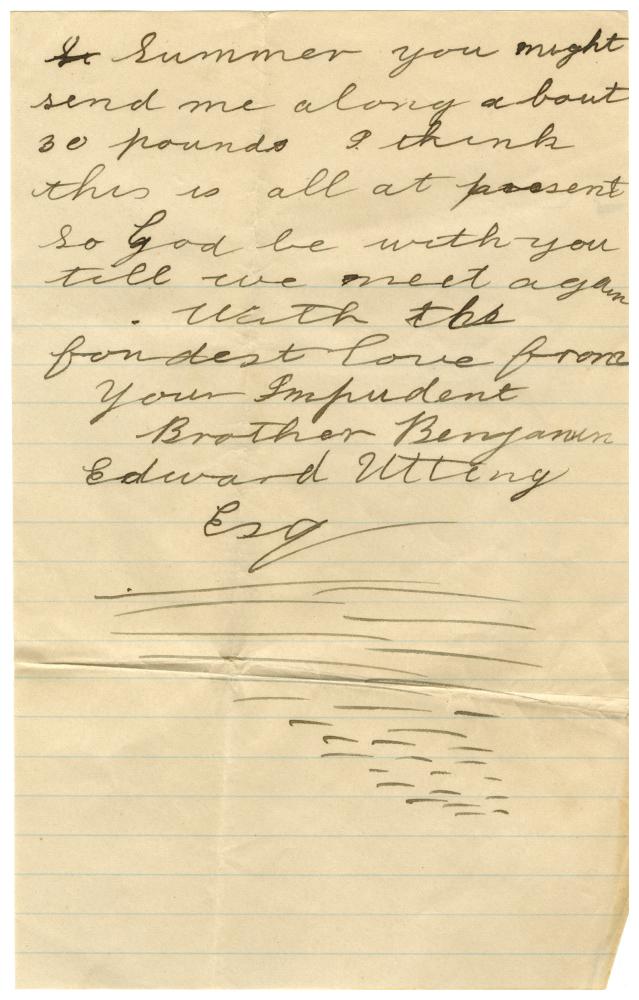 Summer you might
send me along about
30 pounds I think
this is all at present
so God be with you
till we meet again
. With the
fondest love from
Your Impudent
Brother Benjamin
Edward Utting
Esq